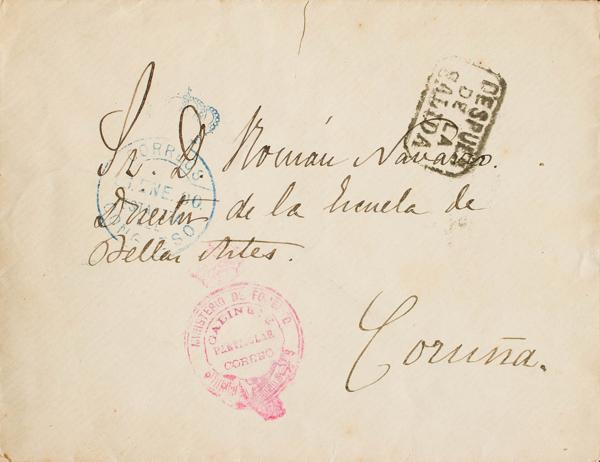 Sr. D. Román Navarro.
Director de la Escuela de
Bellas Artes.
Coruña.
DESPUES
DE LA
SALIDA
CORREOS
ENE
MINISTERIO DE FOMENTO
GABINETE
PARTICULAR
CORREO